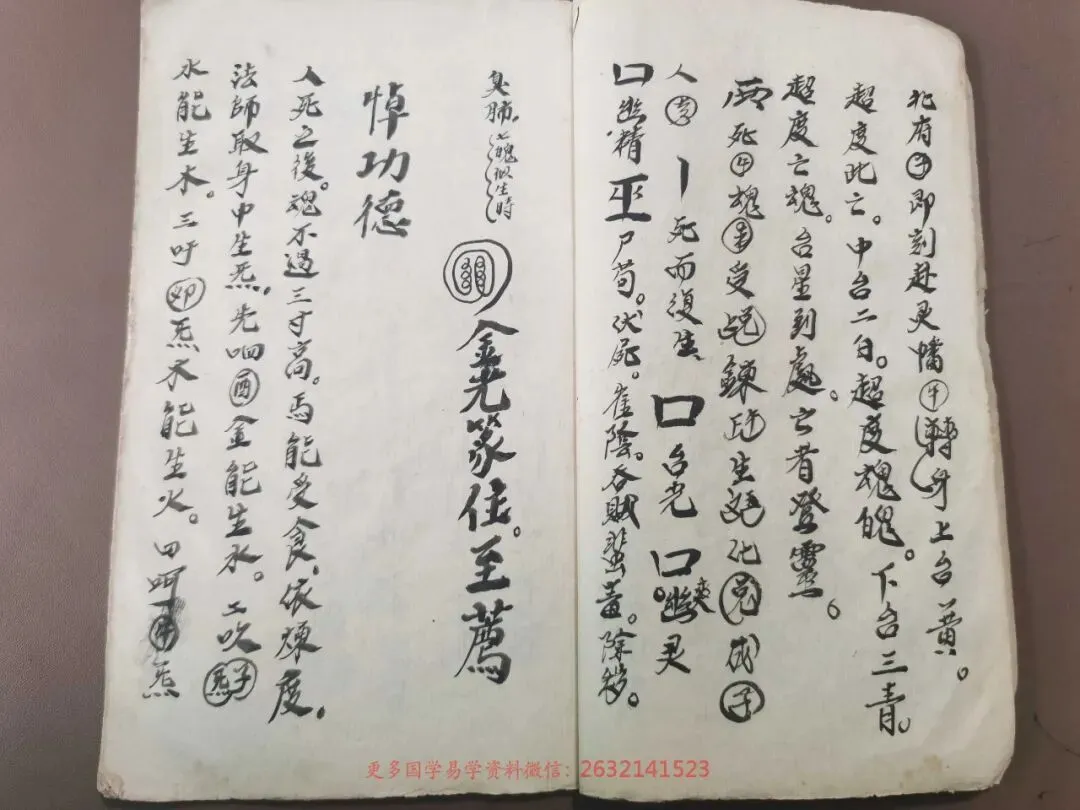 北府子即刻赴灵幡午轉身上台黄。
超度此亡。中台二白。超度魂魄。下台三青。
超度亡魂。台星到處。亡者登靈。
死午魂受鍊生化成子
人丨死而復生口台光口灵
口幽精巫尸苟。伏屍。雀陰。吞賊蜚毒。除穢。
臭肺。魂似生時
金光篆住。至薦
悼功德
人死之後。魂不過三寸高。焉能受食。依煉度。
法師取身中生炁。先呬酉金能生水。二吹子炁
水能生木。三吁卯炁木能生火。四呵午炁
更多国学易学资料微信：2632141523